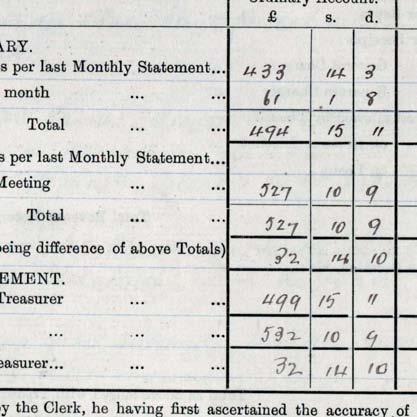 Ordinary Account.
£ s. d.
ARY.
s per last Monthly Statement... 433 14 3
month ... ... 61 1 8
Total ... ... 494 15 11
s per last Monthly Statement...
Meeting ... ... 527 10 9
Total ... ... 527 10 9
being difference of above Totals) 32 14 10
EMENT.
Treasurer ... ... 499 15 11
... ... 532 10 9
easurer... ... ... 32 14 10
by the Clerk, he having first ascertained the accuracy of